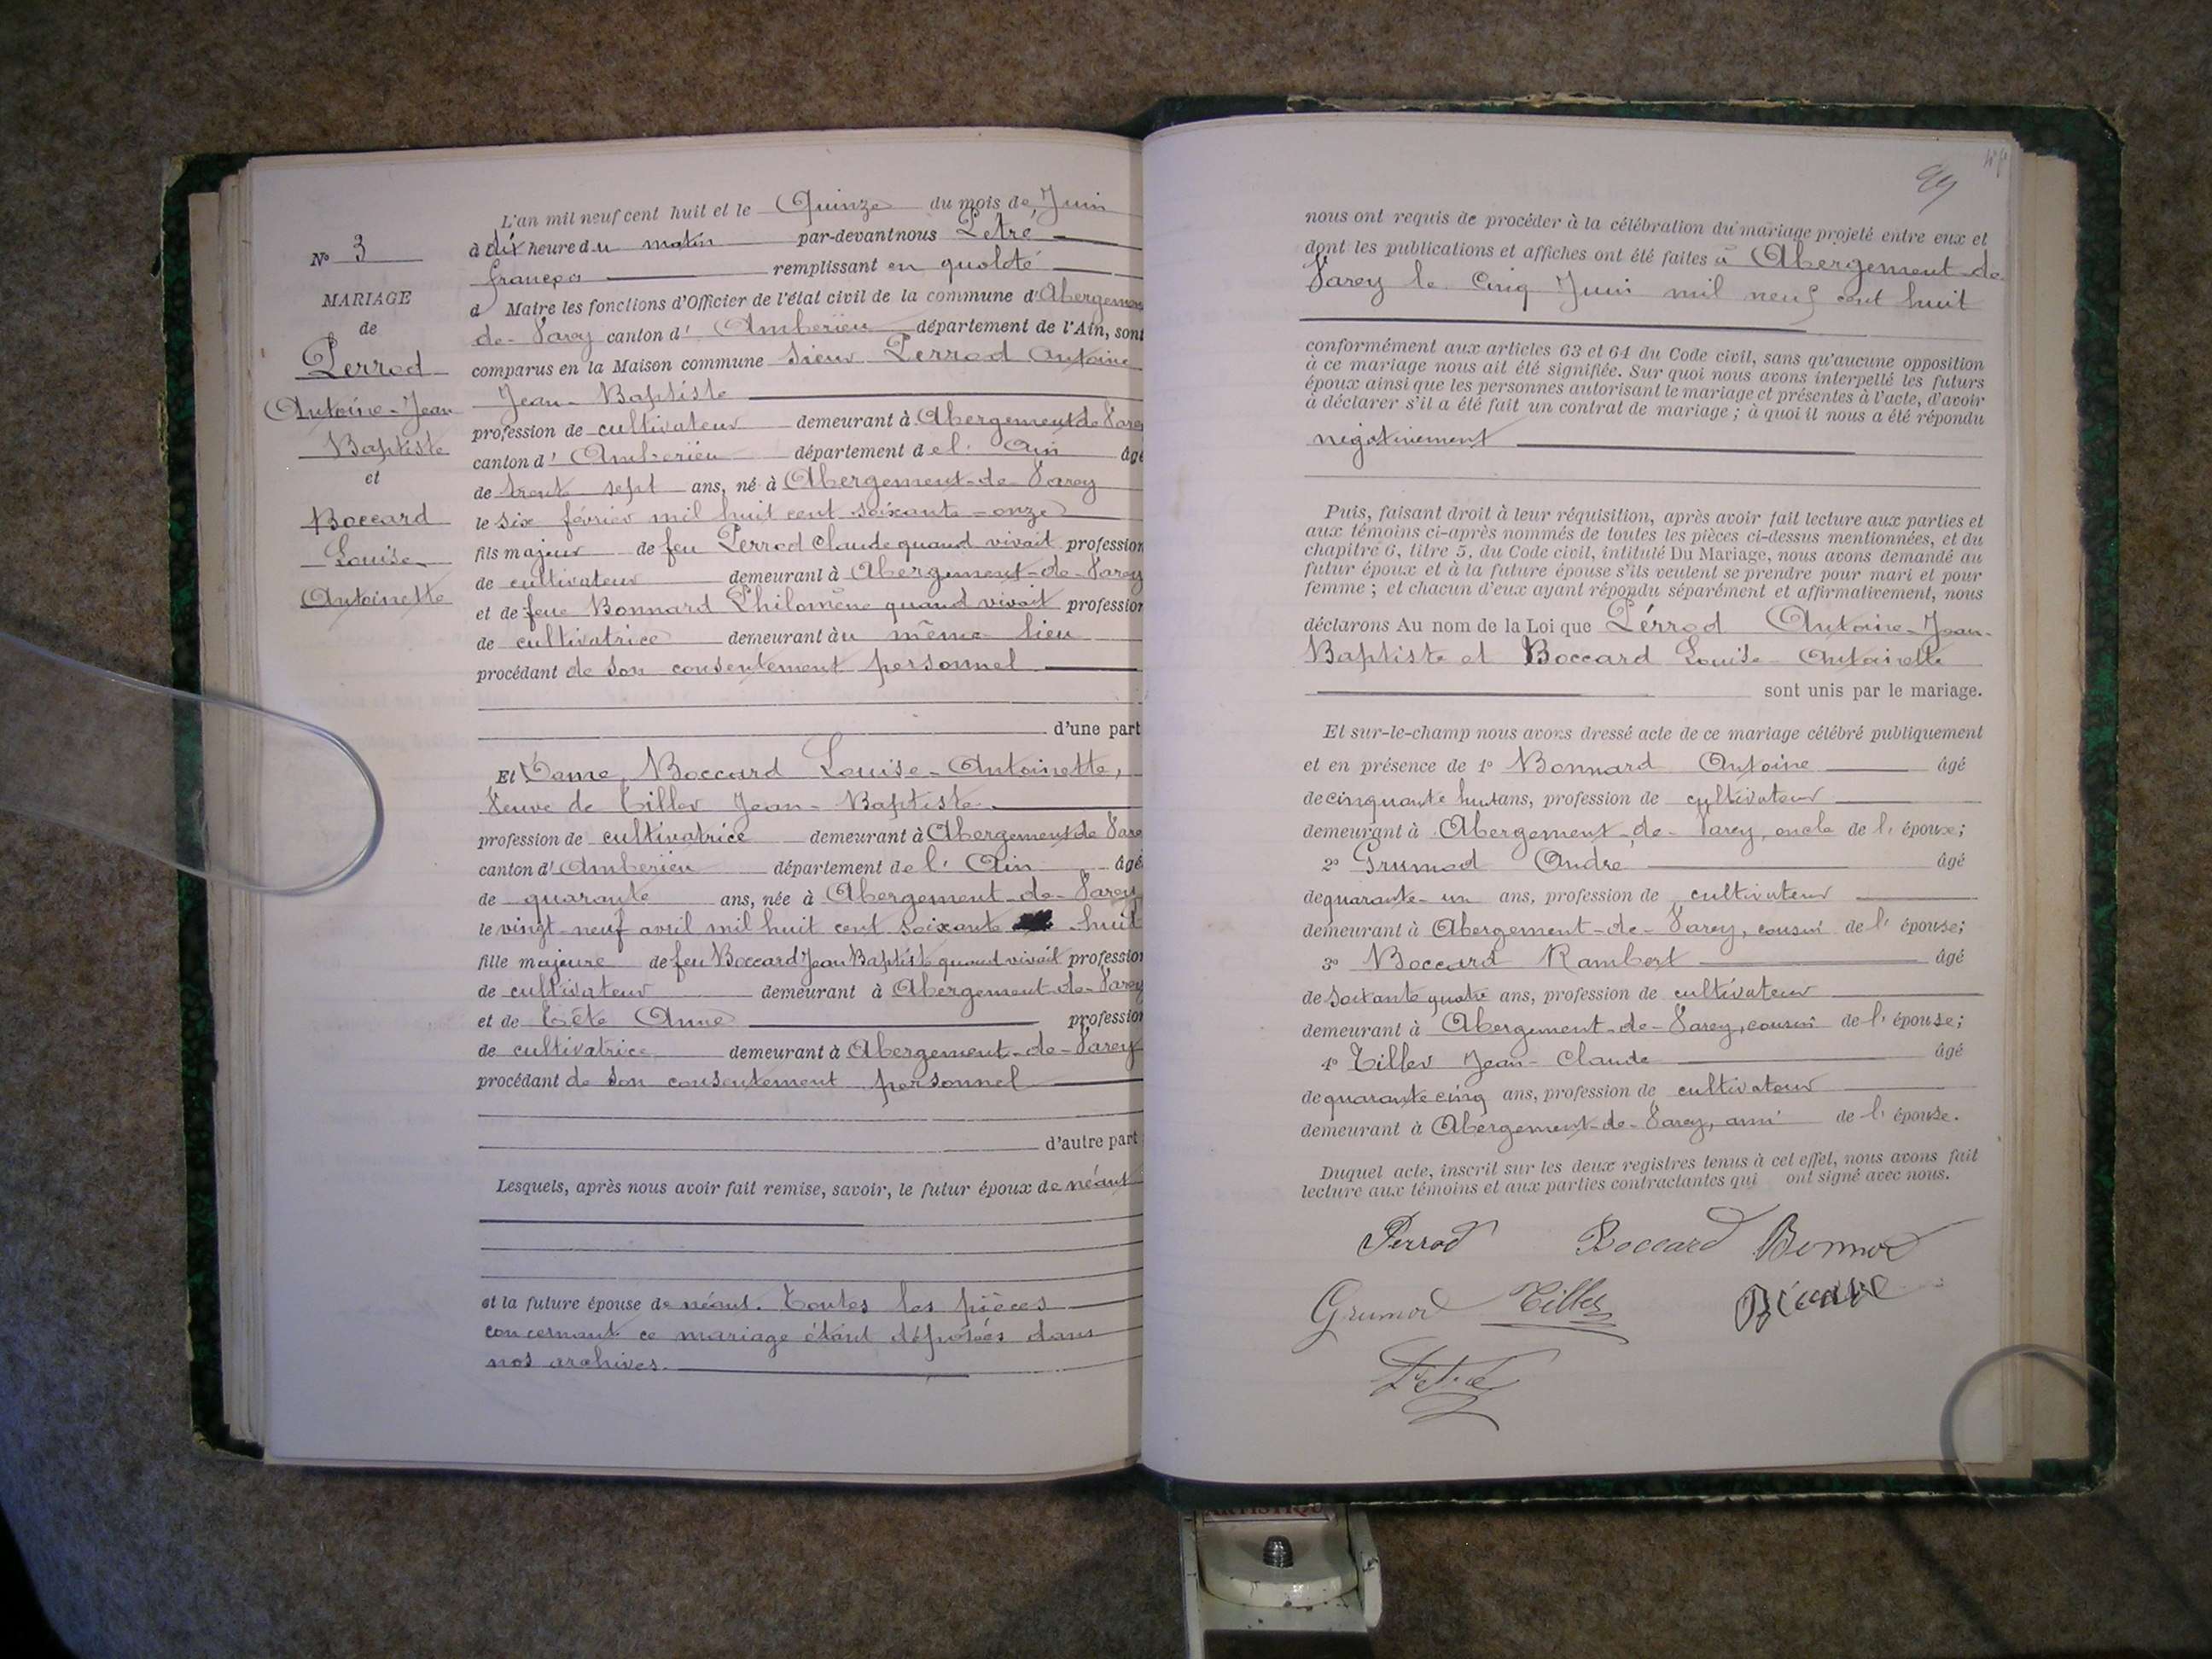 N° 3
MARIAGE
de
Perrod
Antoine-Jean
Baptiste
et
Boccard
Louise
Antoinette
L'an mil neuf cent huit et le Quinze du mois de Juin
à dix heure du matin par-devant nous Petre
françois remplissant en qualité
d Maire les fonctions d'Officier de l'état civil de la commune d'Abergement
de-Varey canton d' Ambérieu département de l'Ain, sont
comparus en la Maison commune sieur Perrod Antoine
Jean-Baptiste
profession de cultivateur demeurant à Abergement de Varey
canton d' Ambérieu département de l' Ain âgé
de trente sept ans, né à Abergement-de-Varey
le six février mil huit cent soixante-onze
fils majeur de feu Perrod Claude quand vivait profession
de cultivateur demeurant à Abergement-de-Varey
et de feue Bonnard Philomène quand vivait profession
de cultivatrice demeurant au même lieu
procédant de son consentement personnel
d'une part
Et Dame Boccard Louise-Antoinette,
Veuve de Tiller Jean-Baptiste
profession de cultivatrice demeurant à Abergement de Varey
canton d' Ambérieu département de l' Ain âgé
de quarante ans, née à Abergement-de-Varey
le vingt-neuf avril mil huit cent soixante huit
fille majeure de feu Boccard Jean Baptiste quand vivait profession
de cultivateur demeurant à Abergement-de-Varey
et de Tête Anne profession
de cultivatrice demeurant à Abergement-de-Varey
procédant de son consentement personnel
d'autre part
Lesquels, après nous avoir fait remise, savoir, le futur époux de néant
et la future épouse de néant. Toutes les pièces
concernant ce mariage étant déposées dans
nos archives.
99
nous ont requis de procéder à la célébration du mariage projeté entre eux et
dont les publications et affiches ont été faites à Abergement-de
Varey le Cinq Juin mil neuf cent huit
conformément aux articles 63 et 64 du Code civil, sans qu'aucune opposition
à ce mariage nous ait été signifiée. Sur quoi nous avons interpellé les futurs
époux ainsi que les personnes autorisant le mariage et présentes à l'acte, d'avoir
à déclarer s'il a été fait un contrat de mariage ; à quoi il nous a été répondu
négativement
Puis, faisant droit à leur réquisition, après avoir fait lecture aux parties et
aux témoins ci-après nommés de toutes les pièces ci-dessus mentionnées, et du
chapitre 6, titre 5, du Code civil, intitulé Du Mariage, nous avons demandé au
futur époux et à la future épouse s'ils veulent se prendre pour mari et pour
femme ; et chacun d'eux ayant répondu séparément et affirmativement, nous
déclarons Au nom de la Loi que Pérrod Antoine-Jean-
Baptiste et Boccard Louise-Antoinette
sont unis par le mariage.
Et sur-le-champ nous avons dressé acte de ce mariage célébré publiquement
et en présence de 1° Bonnard Antoine âgé
de cinquante huit ans, profession de cultivateur
demeurant à Abergement-de-Varey, oncle de l' époux;
2° Grumod André âgé
de quarante-un ans, profession de cultivateur
demeurant à Abergement-de-Varey, cousin de l' épouse;
3° Boccard Rambert âgé
de soixante quatre ans, profession de cultivateur
demeurant à Abergement-de-Varey, cousin de l' épouse;
4° Tiller Jean-Claude âgé
de quarante cinq ans, profession de cultivateur
demeurant à Abergement-de-Varey, ami de l' épouse.
Duquel acte, inscrit sur les deux registres tenus à cet effet, nous avons fait
lecture aux témoins et aux parties contractantes qui ont signé avec nous.
Perrod Boccard
Grumod Tiller
Petre